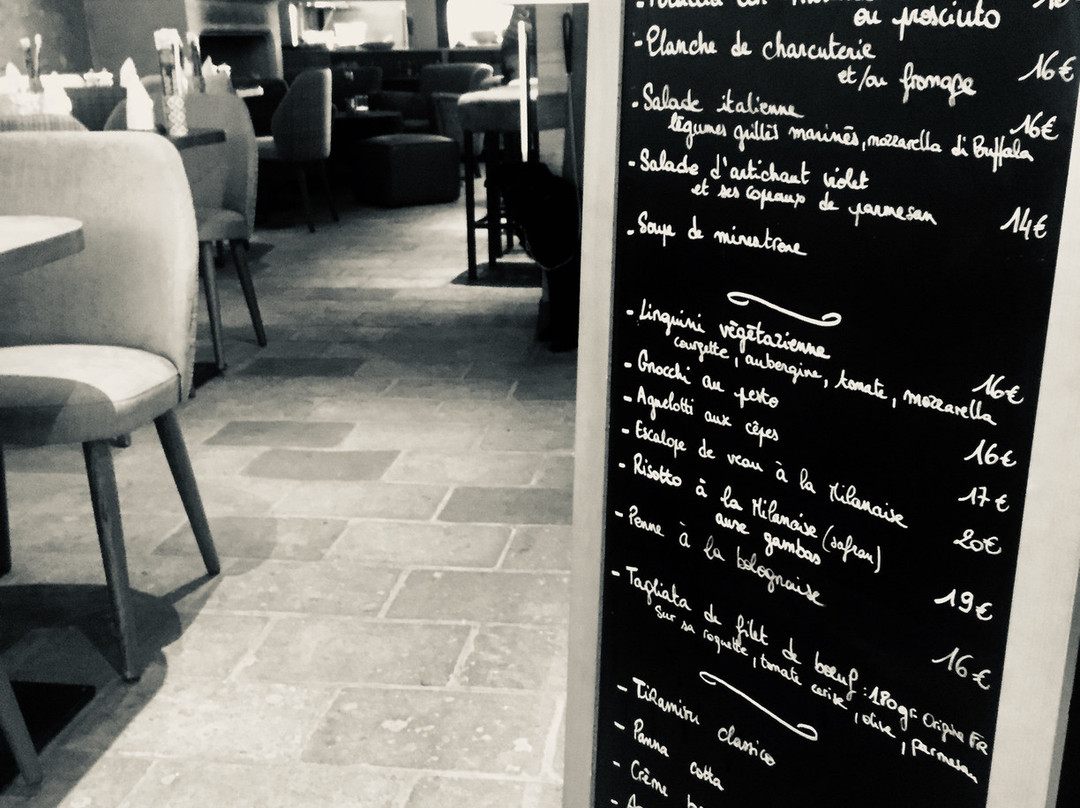 ou prosciuto
- Planche de charcuterie
et/ou fromage 16€
- Salade italienne 16€
légumes grillés marinés, mozzarella di Buffala
- Salade d'artichaut violet
et ses copeaux de parmesan 14€
- Soupe de minestrone
- Linguini végétarienne
courgette, aubergine, tomate, mozzarella 16€
- Gnocchi au pesto 16€
- Agnelotti aux cêpes 17€
- Escalope de veau à la Milanaise 20€
- Risotto à la Milanaise (safran)
aux gambas 19€
- Penne à la bolognaise 16€
- Tagliata de filet de boeuf : 180gr Origine FR
sur sa roquette, tomate cerise, olive, parmesan
- Tiramisu classico
- Panna cotta
- Crème